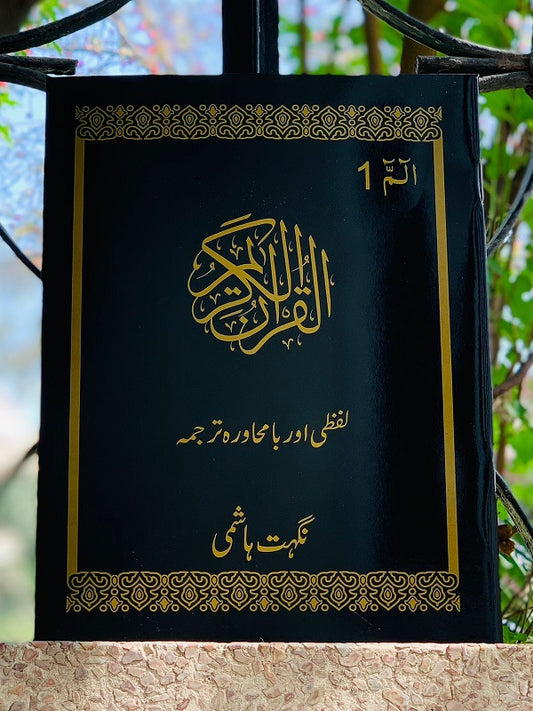 الٓمّٓ 1
القرآن الكريم
لفظی اور بامحاورہ ترجمہ
نگہت ہاشمی